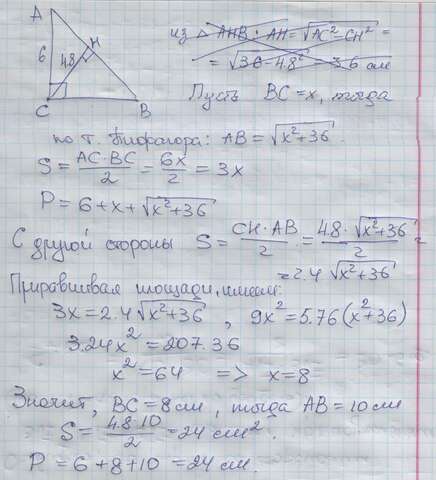 A
6
4.8
H
C
B
из △ AHB: AH = √AC² - CH² =
= √36 - 4.8² = 3.6 см
Пусть BC = x, тогда
по т. Пифагора: AB = √x²+36.
S = AC·BC/2 = 6x/2 = 3x
P = 6 + x + √x²+36
С другой стороны S = CH·AB/2 = 4.8·√x²+36/2 =
= 2.4 √x²+36
Приравнивая площади, имеем:
3x = 2.4 √x²+36, 9x² = 5.76(x²+36)
3.24x² = 207.36
x² = 64 => x = 8
Значит, BC = 8 см, тогда AB = 10 см
S = 4.8·10/2 = 24 см².
P = 6 + 8 + 10 = 24 см.